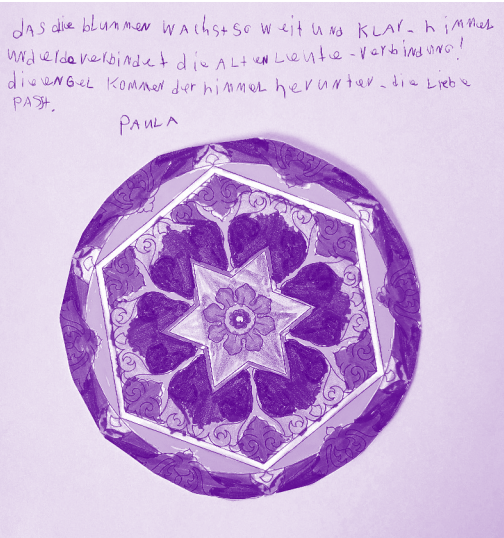 das die blummen wachst so weit und klar - himmel
und erde verbindet die Alten Leute - Verbindung!
die engel kommen der himmel herunter - die Liebe
passt.
Paula